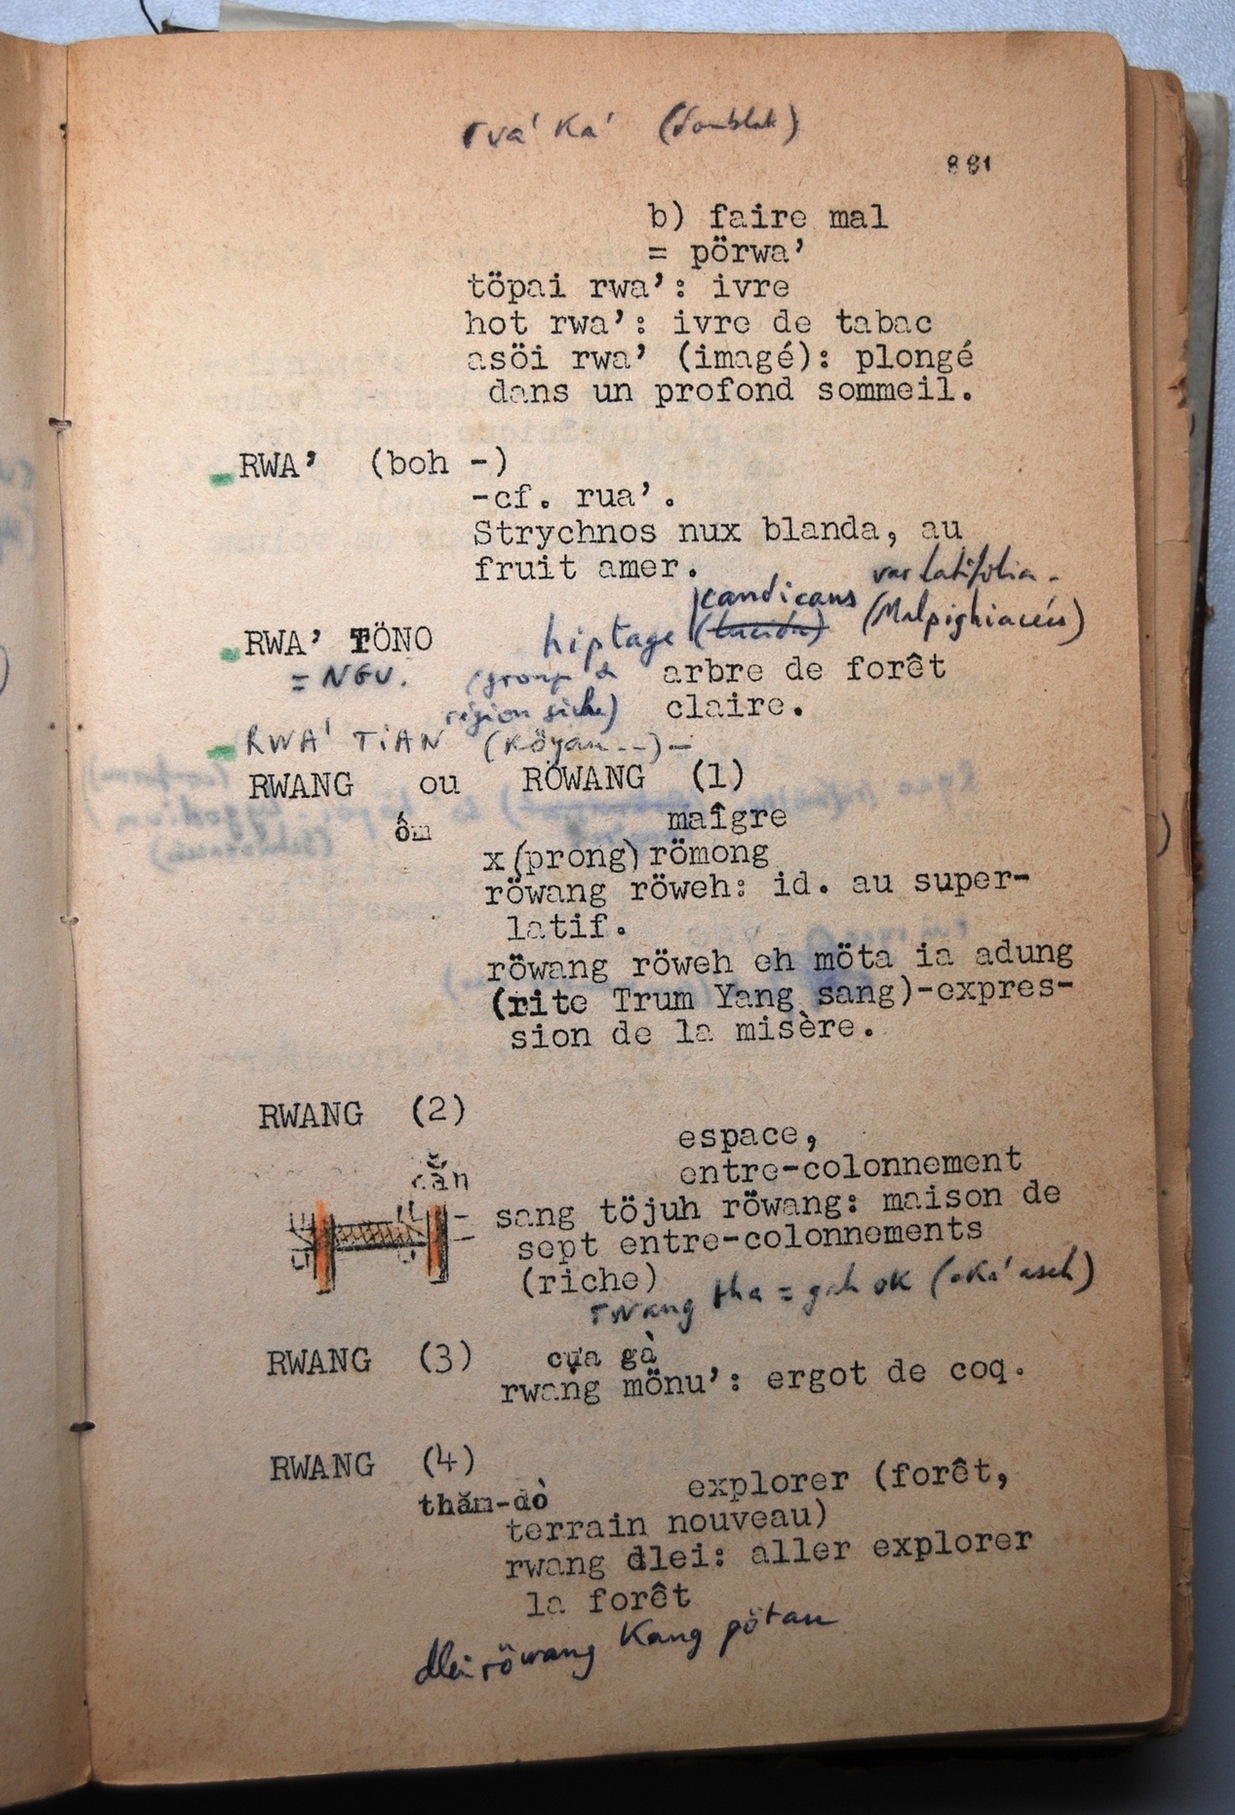 rva' Ka'
881
b) faire mal
= pörwa’
töpai rwa’: ivre
hot rwa’: ivre de tabac
asöi rwa’ (imagé): plongé
dans un profond sommeil.
RWA’ (boh -)
-cf. rua’.
Strychnos nux blanda, au
fruit amer.
var latifolia.
candicans (Malpighiacées)
RWA’ TÖNO hiptage (lucida)
= NGU. arbre de forêt
région claire.
RWA' TiAN (Köyan --) -
RWANG ou RÖWANG (1)
ốm maîgre
x (prong) römong
röwang röweh: id. au super-
latif.
röwang röweh eh möta ia adung
(rite Trum Yang sang)-expres-
sion de la misère.
RWANG (2)
espace,
căn entre-colonnement
sang töjuh röwang: maison de
sept entre-colonnements
(riche)
rwang tha =
RWANG (3) cựa gà
rwang mönu’: ergot de coq.
RWANG (4)
thăm-dò explorer (forêt,
terrain nouveau)
rwang dlei: aller explorer
la forêt
dlei röwang Kang pötau